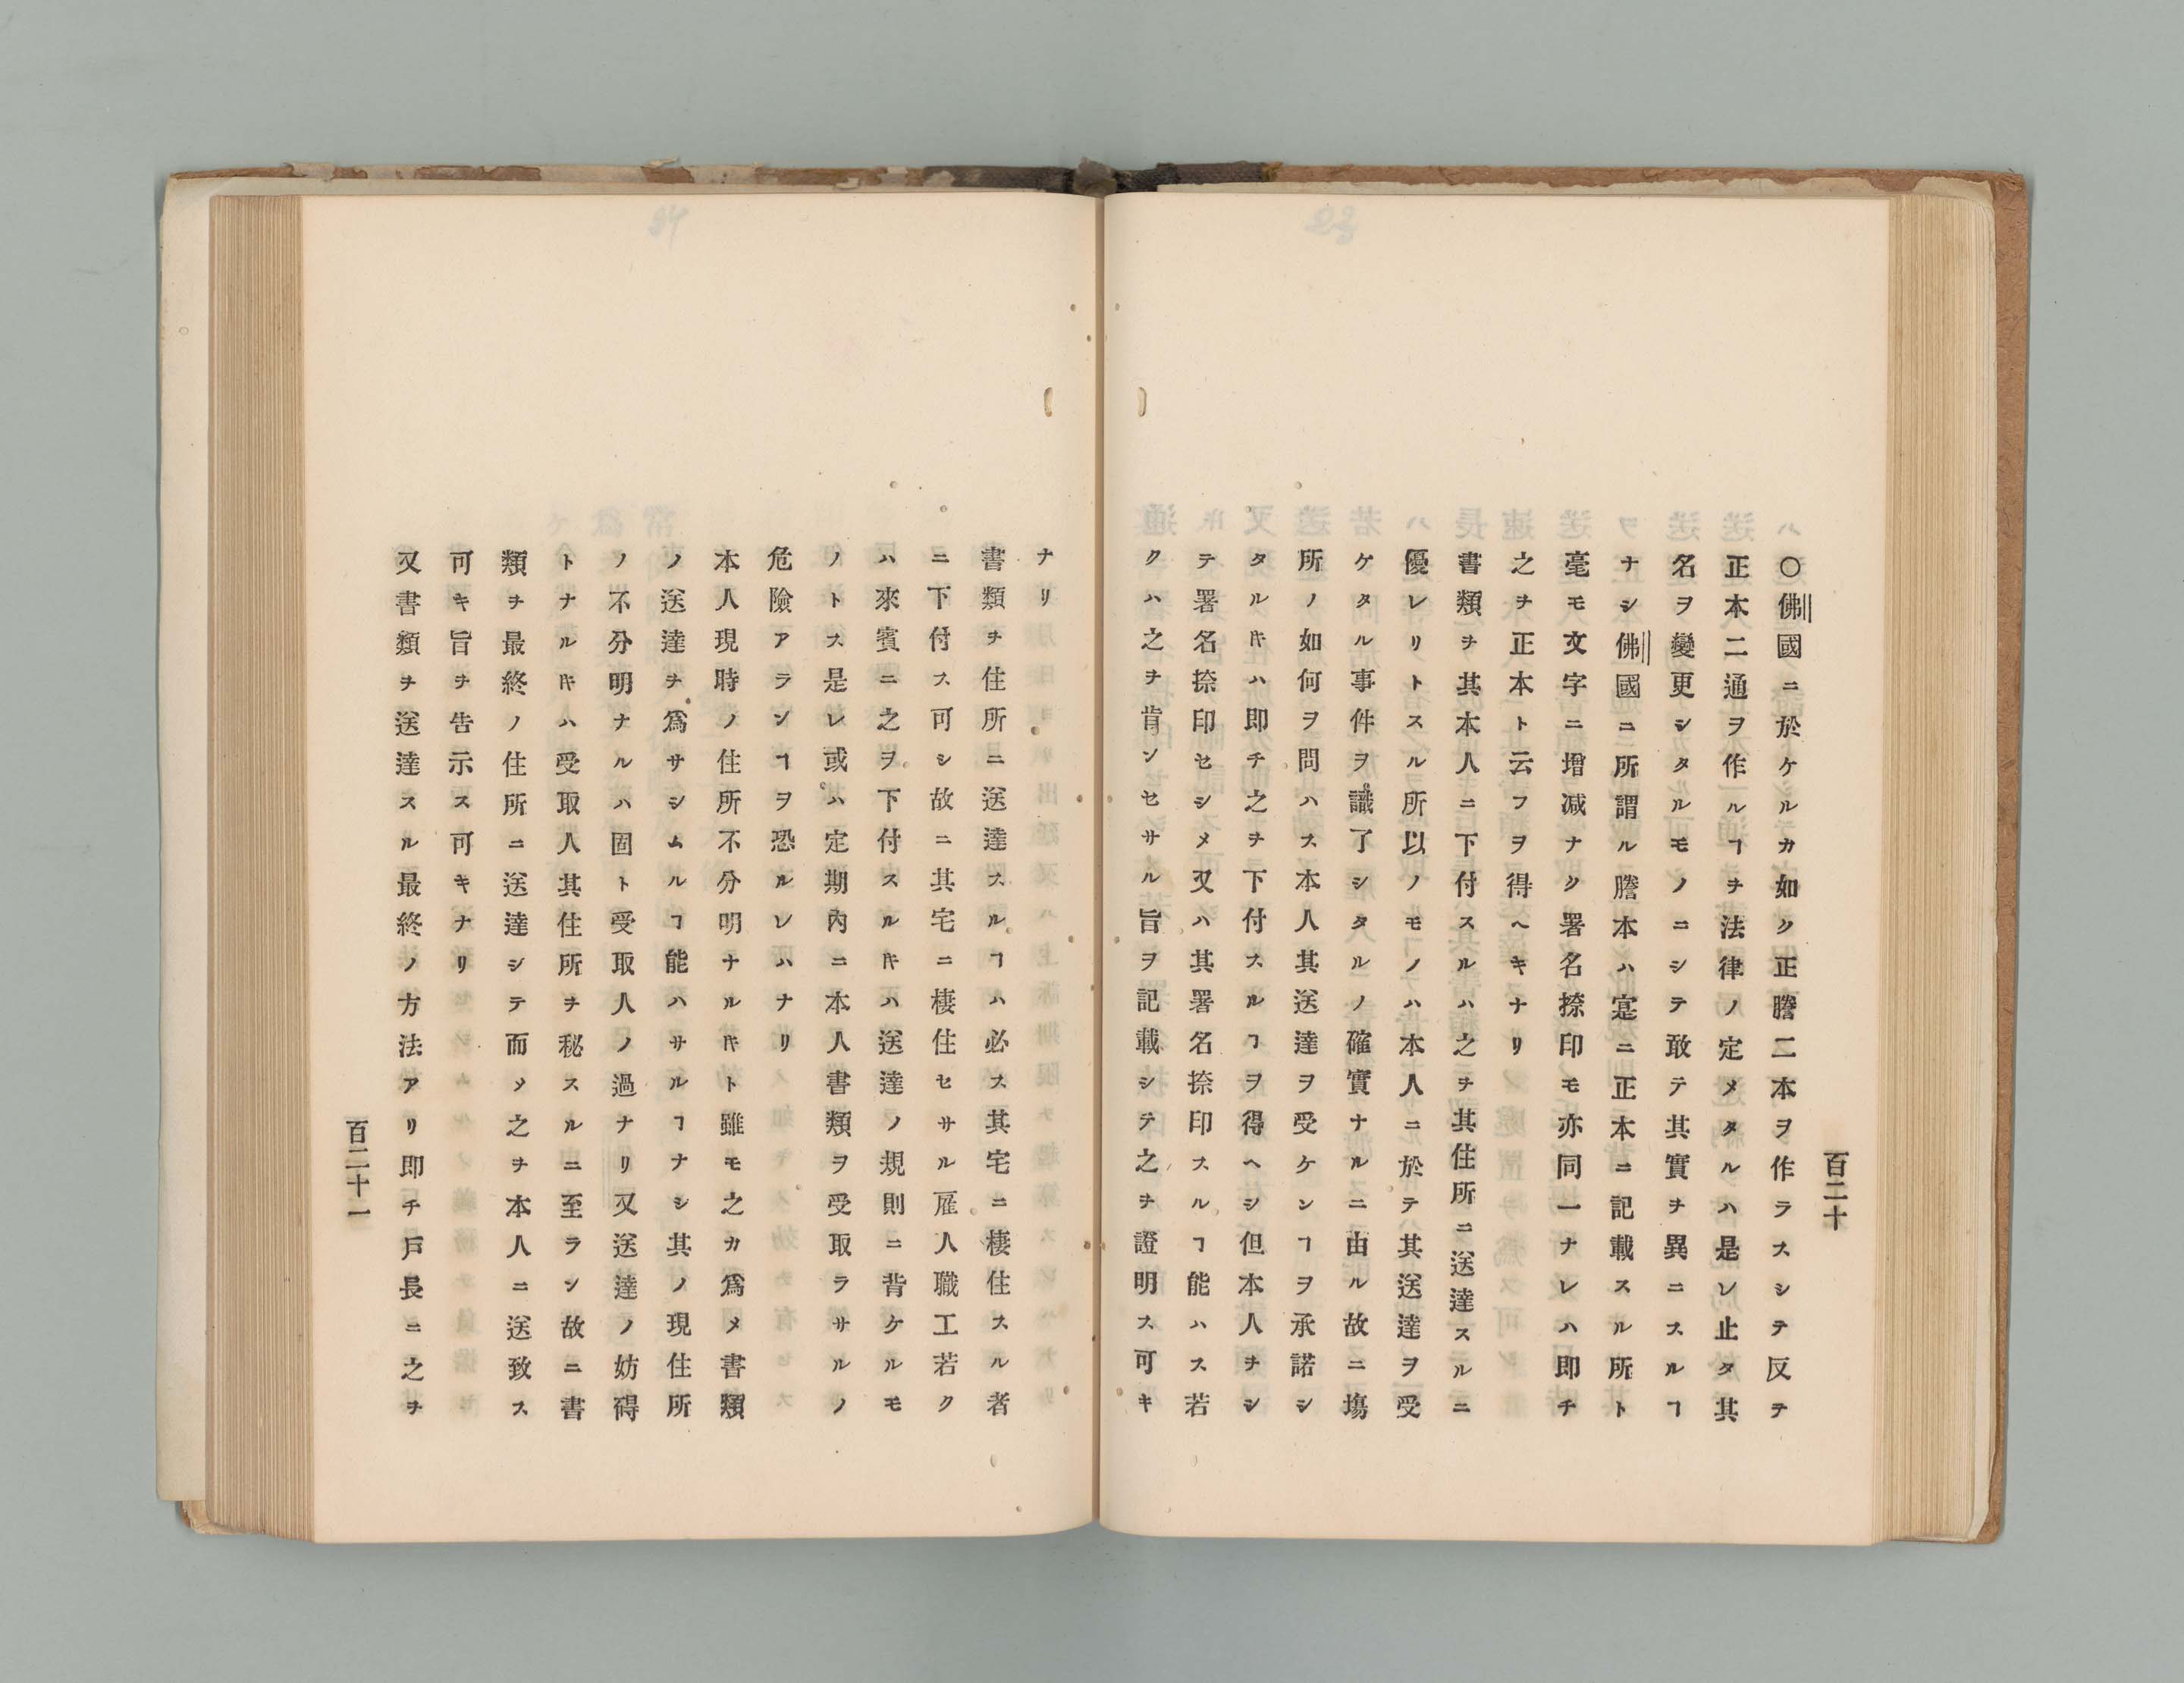 百二十
〇佛國ニ於ケルカ如ク正謄二本ヲ作ラスシテ反テ
正本二通ヲ作ルヿヲ法律ノ定メタルハ是レ止タ其
名ヲ變更シタルモノニシテ敢テ其實ヲ異ニスルヿ
ナシ佛國ニ所謂ル謄本ハ寔ニ正本ニ記載スル所ト
毫モ文字ニ增減ナク署名捺印モ亦同一ナレハ即チ
之ヲ正本ト云フヲ得ヘキナリ
書類ヲ其本人ニ下付スルハ之ヲ其住所ニ送達スルニ
優レリトスル所以ノモノハ本人ニ於テ其送達ヲ受
ケタル事件ヲ識了シタルノ確實ナルニ由ル故ニ塲
所ノ如何ヲ問ハス本人其送達ヲ受ケンヿヲ承諾シ
タルキハ即チ之ヲ下付スルヿヲ得ヘシ但本人ヲシ
テ署名捺印セシメ又ハ其署名捺印スルヿ能ハス若
クハ之ヲ肯ンセサル旨ヲ記載シテ之ヲ證明ス可キ
ナリ
書類ヲ住所ニ送達スルヿハ必ス其宅ニ棲住スル者
ニ下付ス可シ故ニ其宅ニ棲住セサル雇人職工若ク
ハ來賓ニ之ヲ下付スルキハ送達ノ規則ニ背ケルモ
ノトス是レ或ハ定期內ニ本人書類ヲ受取ラサルノ
危險アランヿヲ恐ルレハナリ
本人現時ノ住所不分明ナルキト雖モ之カ爲メ書類
ノ送達ヲ爲サシムルヿ能ハサルヿナシ其ノ現住所
ノ不分明ナルハ固ト受取人ノ過ナリ又送達ノ妨碍
トナルキハ受取人其住所ヲ秘スルニ至ラン故ニ書
類ヲ最終ノ住所ニ送達シテ而メ之ヲ本人ニ送致ス
可キ旨ヲ告示ス可キナリ
又書類ヲ送達スル最終ノ方法アリ即チ戸長ニ之ヲ
百二十一